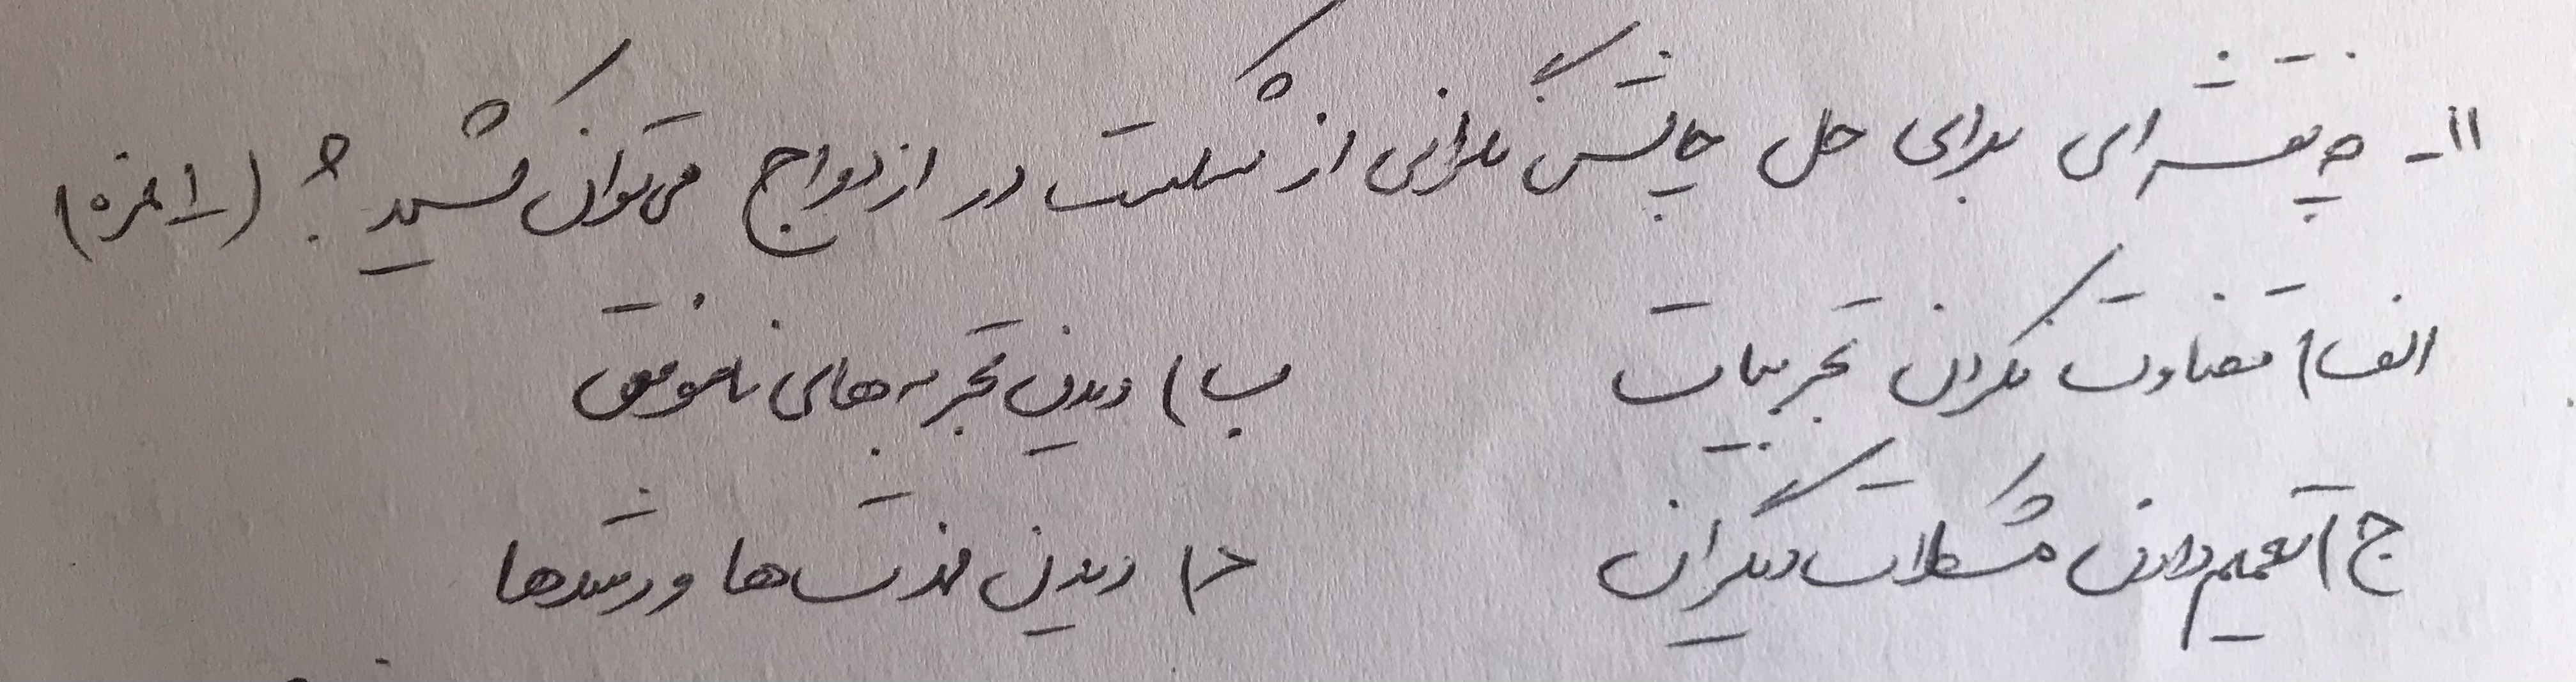 ۱۱- چه نقشه ای برای حل چالش نگرانی از شکست در ازدواج می توان کشید؟ (۱ نمره)
الف) قضاوت نکردن تجربیات ب) دیدن تجربه های ناموفق
ج) تعمیم دادن مشکلات دیگران د) دیدن لذت ها و رشدها